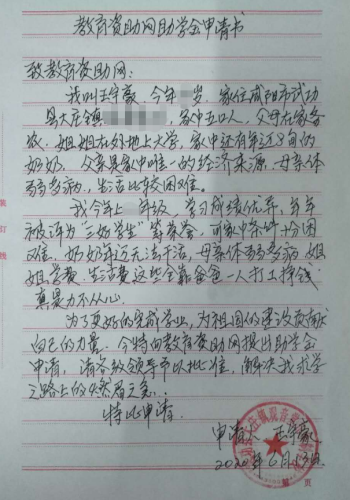 教育资助网助学金申请书
致教育资助网:
我叫王宇豪,今年 岁,家住咸阳市武功
县大庄镇 家中五口人,父母在家务
农,姐姐在外地上大学,家中还有年近 旬的
奶奶,父亲是家中唯一的经济来源,母亲体
弱多病,生活比较困难。
我今年上 年级,学习成绩优异,多年
被评为“三好学生”等奖金,可家中条件十分困
难,奶奶年迈无法干活,母亲体弱多病,姐
姐学费、生活费这些全靠爸爸一人打工挣钱,
真是力不从心。
为了更好的完成学业,为祖国的建设贡献
自己的力量,今特向教育资助网提出助学金
申请,请各级领导予以批准,解决我求学
之路上的燃眉之急。
特此申请
申请人 王宇豪
2020年6月 日
装
订
线
页